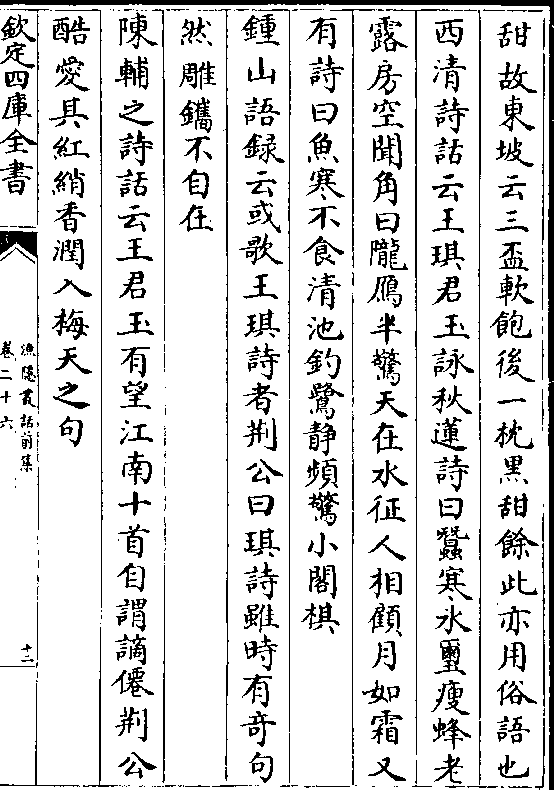 甜故東坡云三盃軟飽後一枕黑甜餘此亦用俗語也
西清詩話云王琪君玉詠秋蓮詩曰蠶寒氷璽瘦蜂老
露房空聞角曰隴鴈半驚天在水征人相顧月如霜又
有詩曰魚寒不食清池釣鷺静頻驚小閣棋
鍾山語録云或歌王琪詩者荆公曰琪詩雖時有奇句
然雕鐫不自在
陳輔之詩話云王君玉有望江南十首自謂謫僊荆公
酷愛其紅綃香潤入梅天之句
欽定四庫全書
漁隱叢話前集
卷二十六
十二